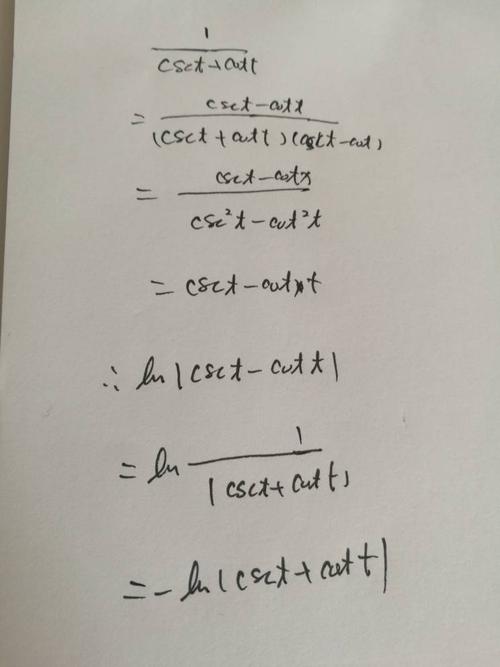 1
csct+cott
= csct-cott
(csct+cott)(csct-cot)
= csct-cott
csc²t-cot²t
= csct-cott
∴ ln|csct-cott|
= ln 1
|csct+cott|
= -ln|csct+cott|